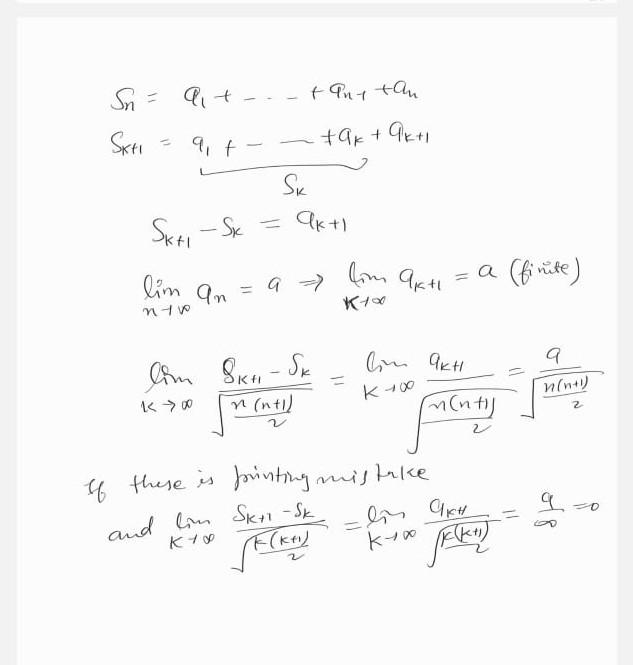 Sn = a1 + - - - + an-1 + an
Sk+1 = a1 + - — + ak + ak+1
Sk
Sk+1 - Sk = ak+1
lim n→∞ an = a ⇒ lim k→∞ ak+1 = a (finite)
lim k→∞ (Sk+1 - Sk)/√(n(n+1)/2) = lim k→∞ ak+1/√(n(n+1)/2) = a/√(n(n+1)/2)
If these is printing mistake
and lim k→∞ (Sk+1 - Sk)/√(k(k+1)/2) = lim k→∞ ak+1/√(k(k+1)/2) = a/∞ = 0